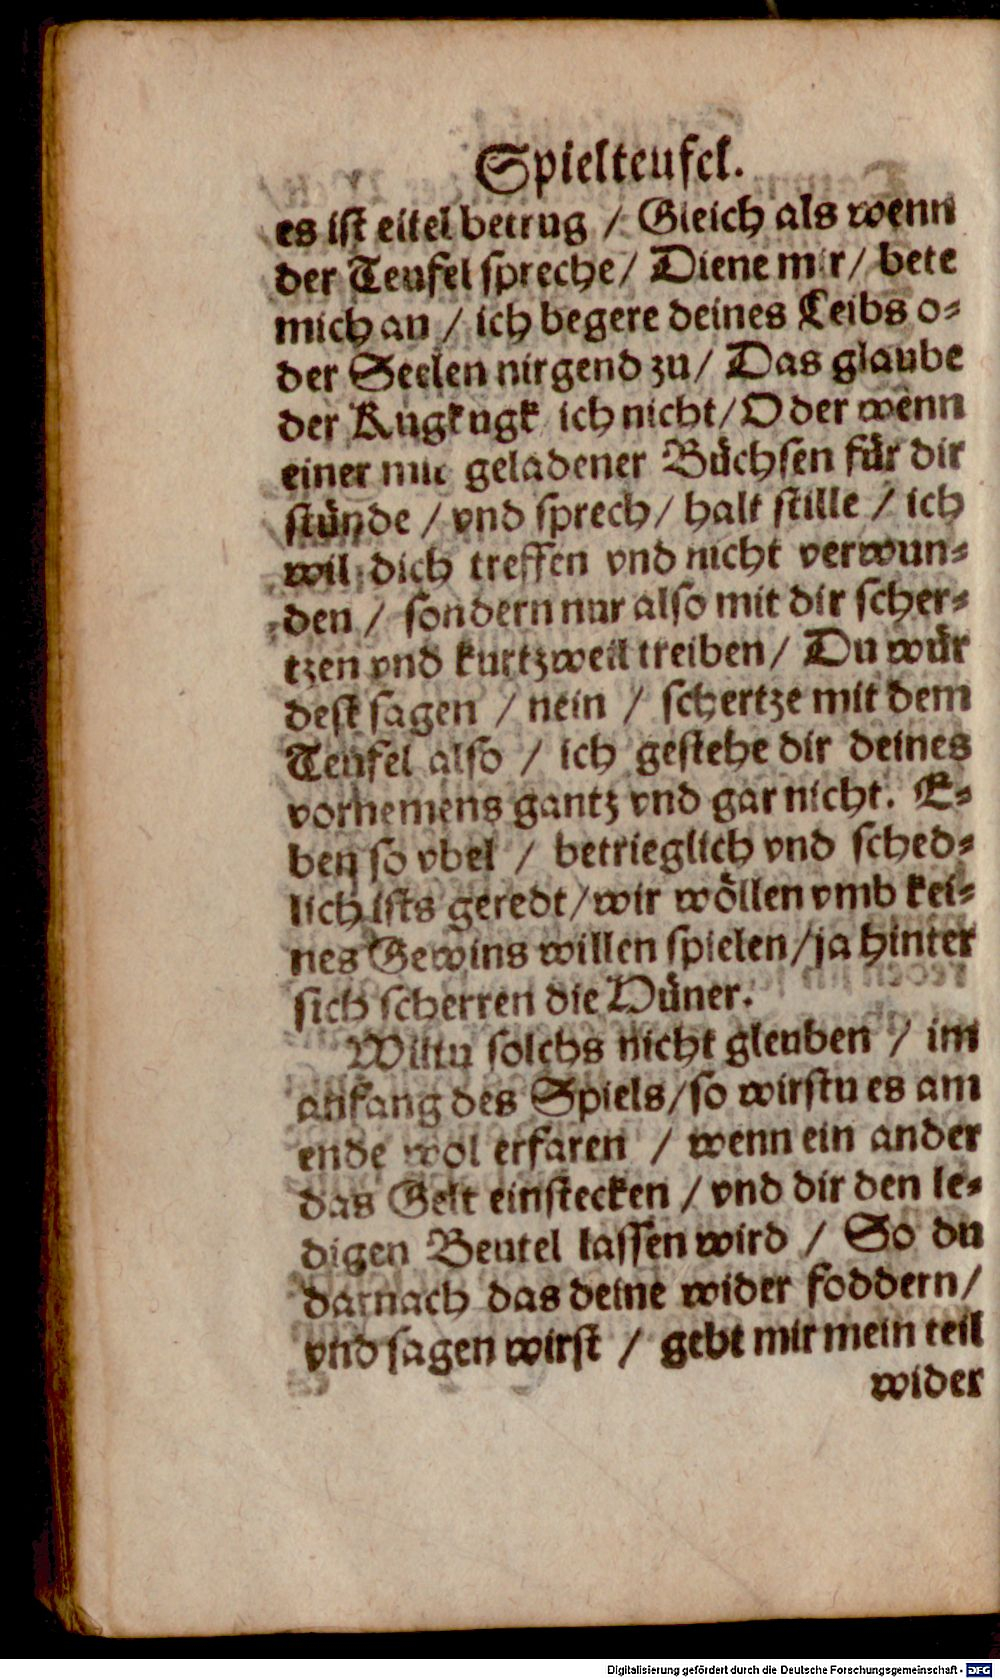 Spielteufel.
es ist eitel betrug / Gleich als wenn
der Teufel spreche / Diene mir / bete
mich an / ich begere deines Leibs o⸗
der Seelen nirgend zu / Das glaube
der Kugkugk ich nicht / Oder wenn
einer mit geladener Büchsen für dir
stünde / vnd sprech / halt stille / ich
wil dich treffen vnd nicht verwun⸗
den / sondern nur also mit dir scher⸗
tzen vnd kurtzweil treiben / Du wür
dest sagen / nein / schertze mit dem
Teufel also / ich gestehe dir deines
vornemens gantz vnd gar nicht. E⸗
ben so vbel / betrieglich vnd sched⸗
lich ists geredt / wir wöllen vmb kei⸗
nes Gewins willen spielen / ja hinter
sich scherren die Hüner.
Wiltu solchs nicht gleuben / im
anfang des Spiels / so wirstu es am
ende wol erfaren / wenn ein ander
das Gelt einstecken / vnd dir den le⸗
digen Beutel lassen wird / So du
darnach das deine wider foddern /
vnd sagen wirst / gebt mir mein teil
wider
Digitalisierung gefördert durch die Deutsche Forschungsgemeinschaft - DFG